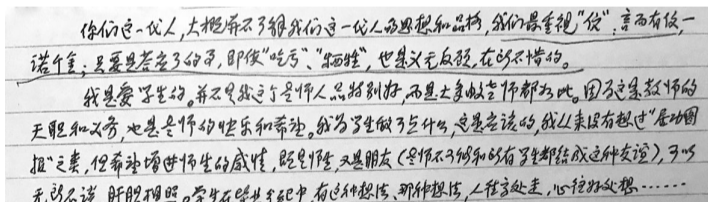 你们这一代人,大概并不了解我们这一代人的思想和品格,我们最重视“信”:言而有信,一
诺千金;只要是答应了的事,即使“吃亏”、“牺牲”,也是义无反顾,在所不惜的。
我是爱学生的。并不是我这个老师人品特别好,而是大多数老师都如此。因为这是教师的
天职和义务,也是老师的快乐和希望。我为学生做了点什么,这是应该的,我从来没有想过“居功图
报”之类,但希望增进师生的感情,既是师生,又是朋友(老师不可能和所有学生都结成这种友谊),可以
无所不谈,肝胆相照。学生在毕业分配中,有这种想法、那种想法,人往高处走,心往好处想……